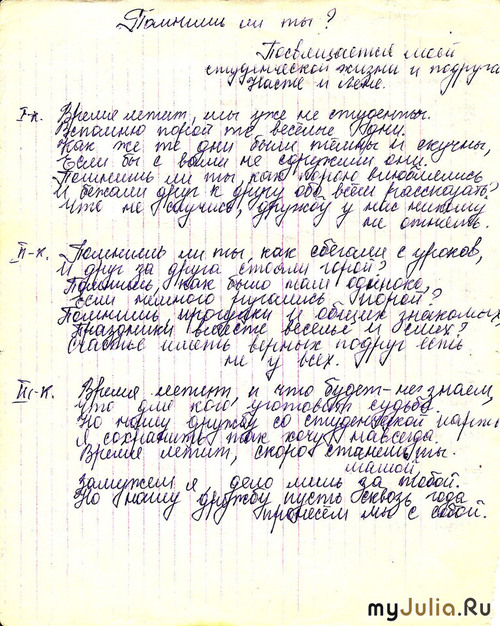 Помнишь ли ты?
Посвящается моей
студенческой жизни и подругам
Насте и Лене.
I-к. Время летит, мы уже не студенты.
Вспомню порой те весёлые дни.
Как же те дни были и скучны,
Если бы с вами не сдружили они.
Помнишь ли ты, как порою влюблялись
И бежали друг к другу обо всём рассказать?
Что не случись, дружбу у нас никому
не отнять.
II-к. Помнишь ли ты, как сбегали с уроков,
И друг за друга стояли горой?
Помнишь, как было нам одиноко,
Если немного ругались порой?
Помнишь прогулки и общих знакомых,
Праздники вместе веселье и смех?
Счастье иметь верных подруг есть
не у всех.
III-к. Время летит, и что будет - не знаем,
Что для кого уготовит судьба.
Но нашу дружбу со студенческой парты
Я сохранить так хочу навсегда.
Время летит, скоро станешь ты
мамой,
Замужем я, дело лишь за тобой.
Но нашу дружбу пусть сквозь года
пронесём мы с собой.
myJulia.Ru